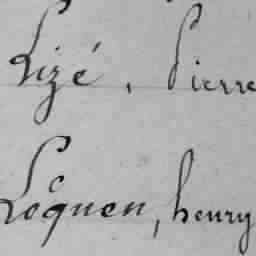 Lizé, Pierre
Locquen, henry